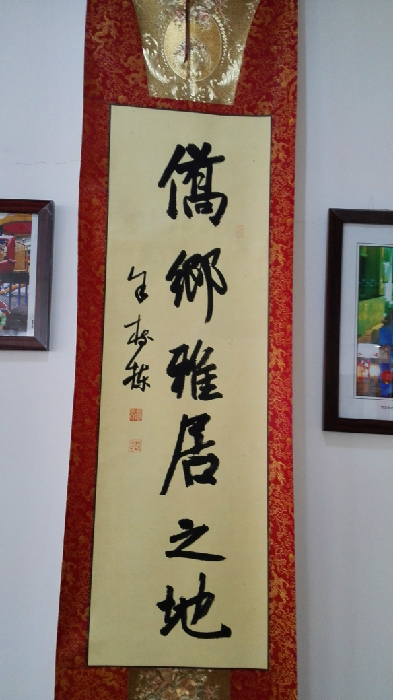 僑鄉雅居之地